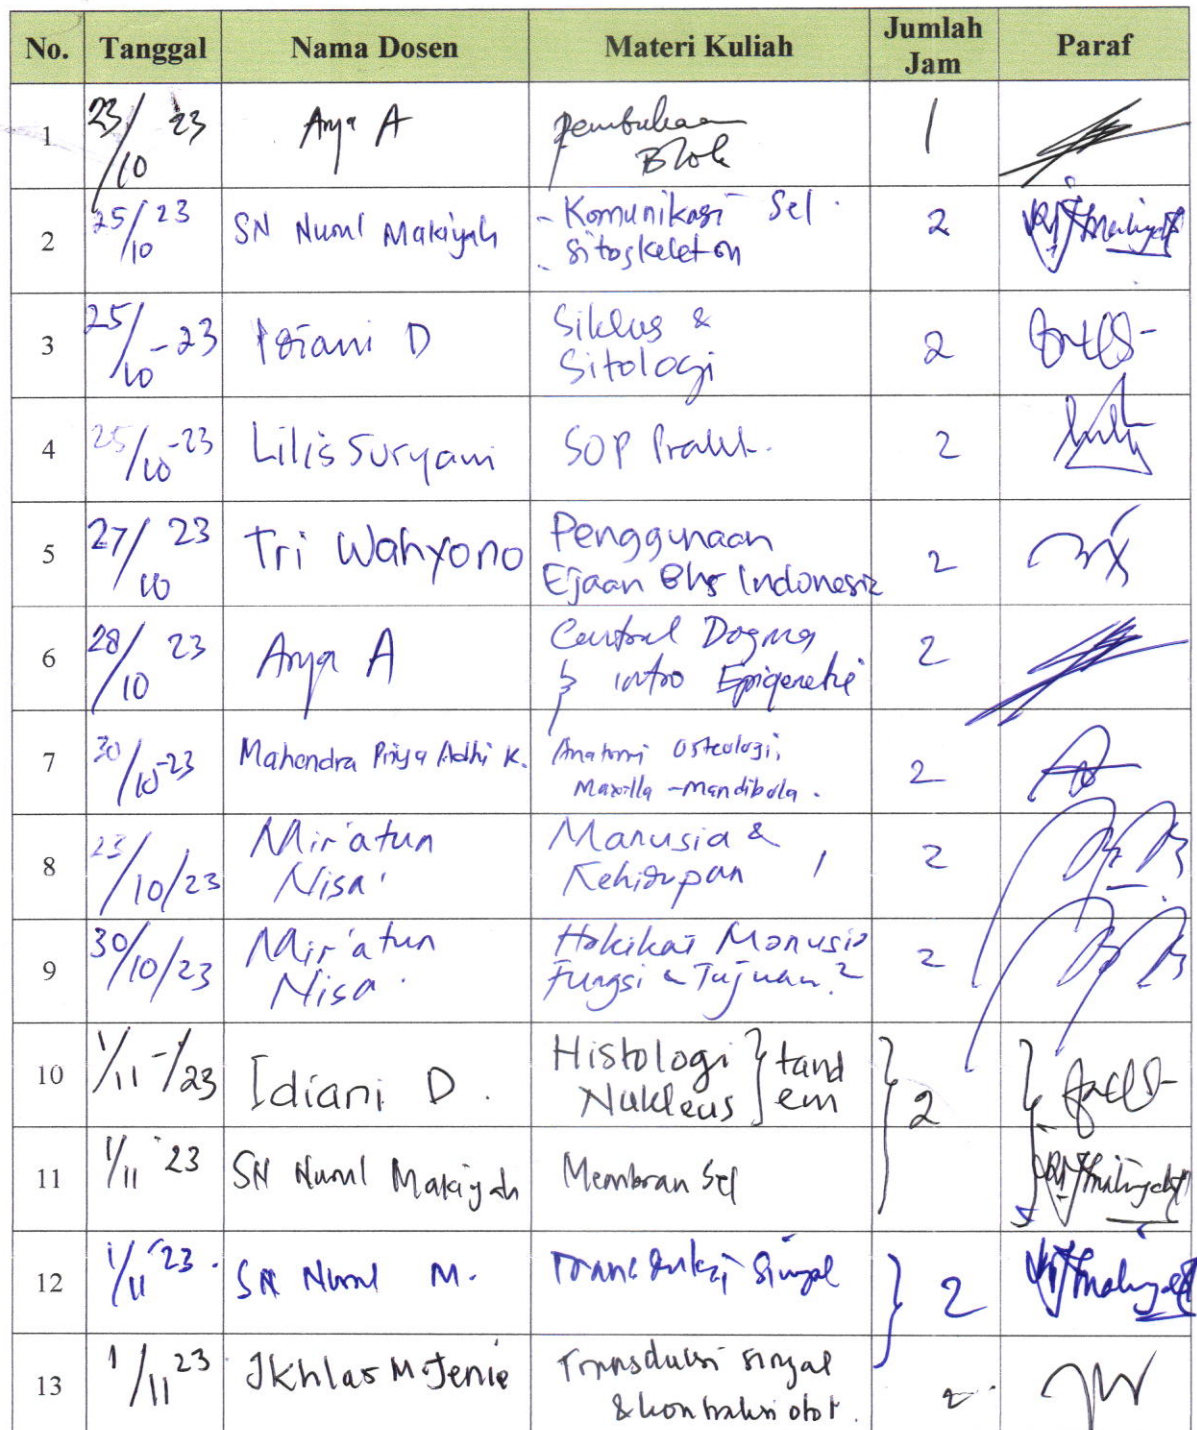 No. Tanggal Nama Dosen Materi Kuliah Jumlah Jam Paraf
1 23/10 23 Arya A Pembukaan Blok 1
2 25/10 23 SN Nurul Makiyah - Komunikasi Sel - Sitoskeleton 2
3 25/10-23 Idiani D Siklus & Sitologi 2
4 25/10-23 Lilis Suryani SOP Prakt. 2
5 27/10 23 Tri Wahyono Penggunaan Ejaan Bhs Indonesia 2
6 28/10 23 Arya A Central Dogma intro Epigenetik 2
7 30/10-23 Mahendra Priya Adhi K. Anatomi Osteologi, Maxilla - Mandibola. 2
8 23/10/23 Mir'atun Nisa' Manusia & Kehidupan 2
9 30/10/23 Mir'atun Nisa' Hakikat Manusia Fungsi & Tujuan 2
10 1/11-/23 Idiani D. Histologi Nukleus } tand em 2
11 1/11 23 SN Nurul Makiyah Membran Sel
12 1/11 23. SN Nurul M. Transduksi Sinyal 2
13 1/11 23 Ikhlas M. Jenie Transduksi sinyal & kontraksi otot.